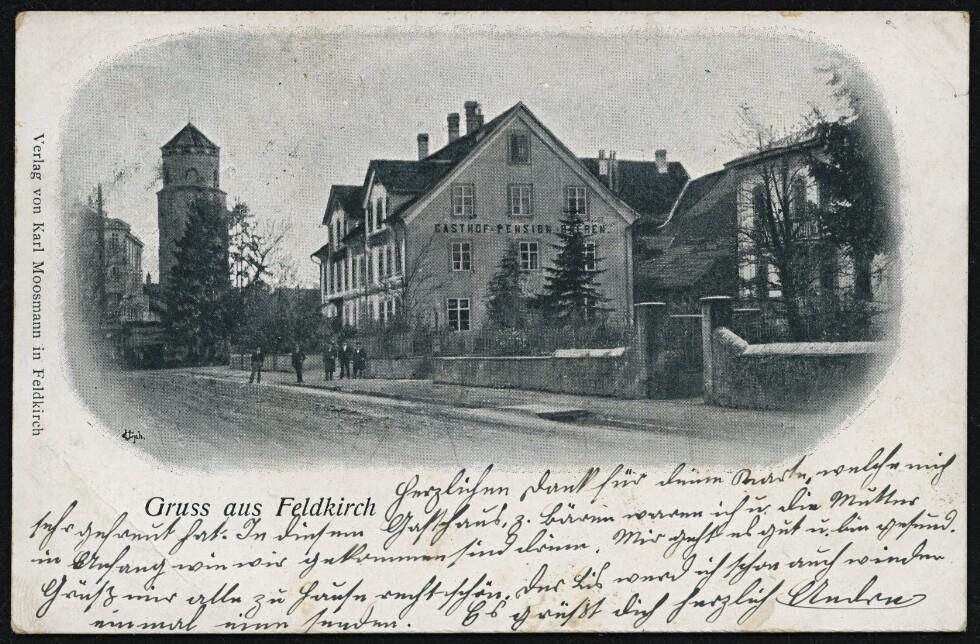 GASTHOF-PENSION BAEREN
Verlag von Karl Moosmann in Feldkirch
Gruss aus Feldkirch
Herzlichen Dank für deine Karte, welche mich
sehr gefreut hat. In diesem Gasthaus, z. Bären waren ich u. die Mutter
im Anfang wie wir gekommen sind drinn. Mir geht es gut u. bin gesund.
Grüß mir alle zu Hause recht schön. Der Lis werd ich schon auch wieder
einmal eine senden. Es grüßt dich herzlich